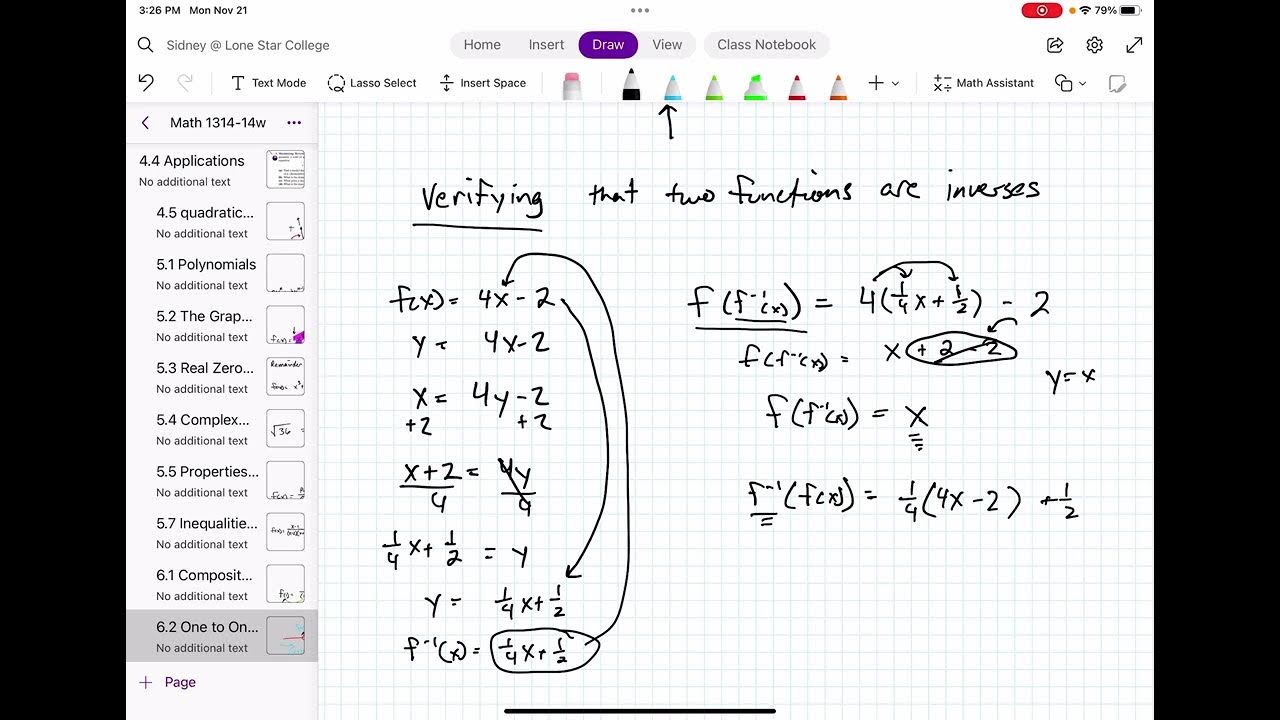 3:26 PM Mon Nov 21
79%
Sidney @ Lone Star College
Home Insert Draw View Class Notebook
Text Mode Lasso Select Insert Space Math Assistant
Math 1314-14w
4.4 Applications
No additional text
4.5 quadratic...
No additional text
5.1 Polynomials
No additional text
5.2 The Grap...
No additional text
5.3 Real Zero...
No additional text
5.4 Complex...
No additional text
5.5 Properties...
No additional text
5.7 Inequalitie...
No additional text
6.1 Composit...
No additional text
6.2 One to On...
No additional text
+ Page
Verifying that two functions are inverses
f(x) = 4x - 2
y = 4x - 2
x = 4y - 2
+2 +2
x + 2 = 4y
4 4
1/4 x + 1/2 = y
y = 1/4 x + 1/2
f⁻¹(x) = 1/4 x + 1/2
f(f⁻¹(x)) = 4(1/4 x + 1/2) - 2
f(f⁻¹(x)) = x + 2 - 2
y = x
f(f⁻¹(x)) = x
f⁻¹(f(x)) = 1/4 (4x - 2) + 1/2